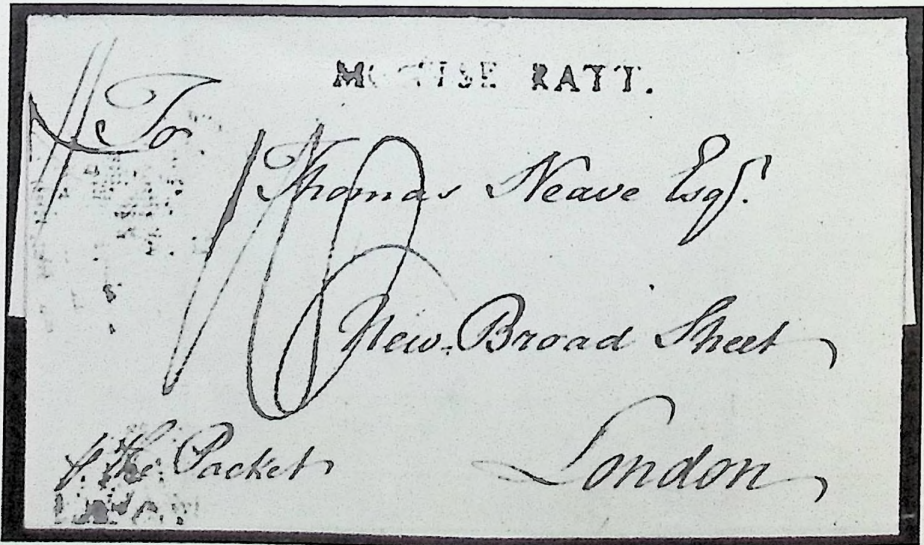 RATT.
To
Thomas Neave Esqr.
New Broad Street
London
p. the Packet